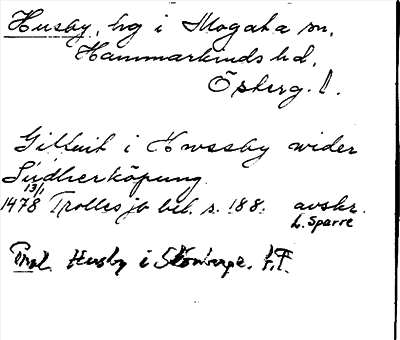 Husby, hg i Mogata sn,
Hammarkinds hd,
Österg. l.
Giltuit i Hwssby wider
Sudherköpung
13/1
1478 Trolles jb bil. s. 188. avskr.
L. Sparre
Husby i